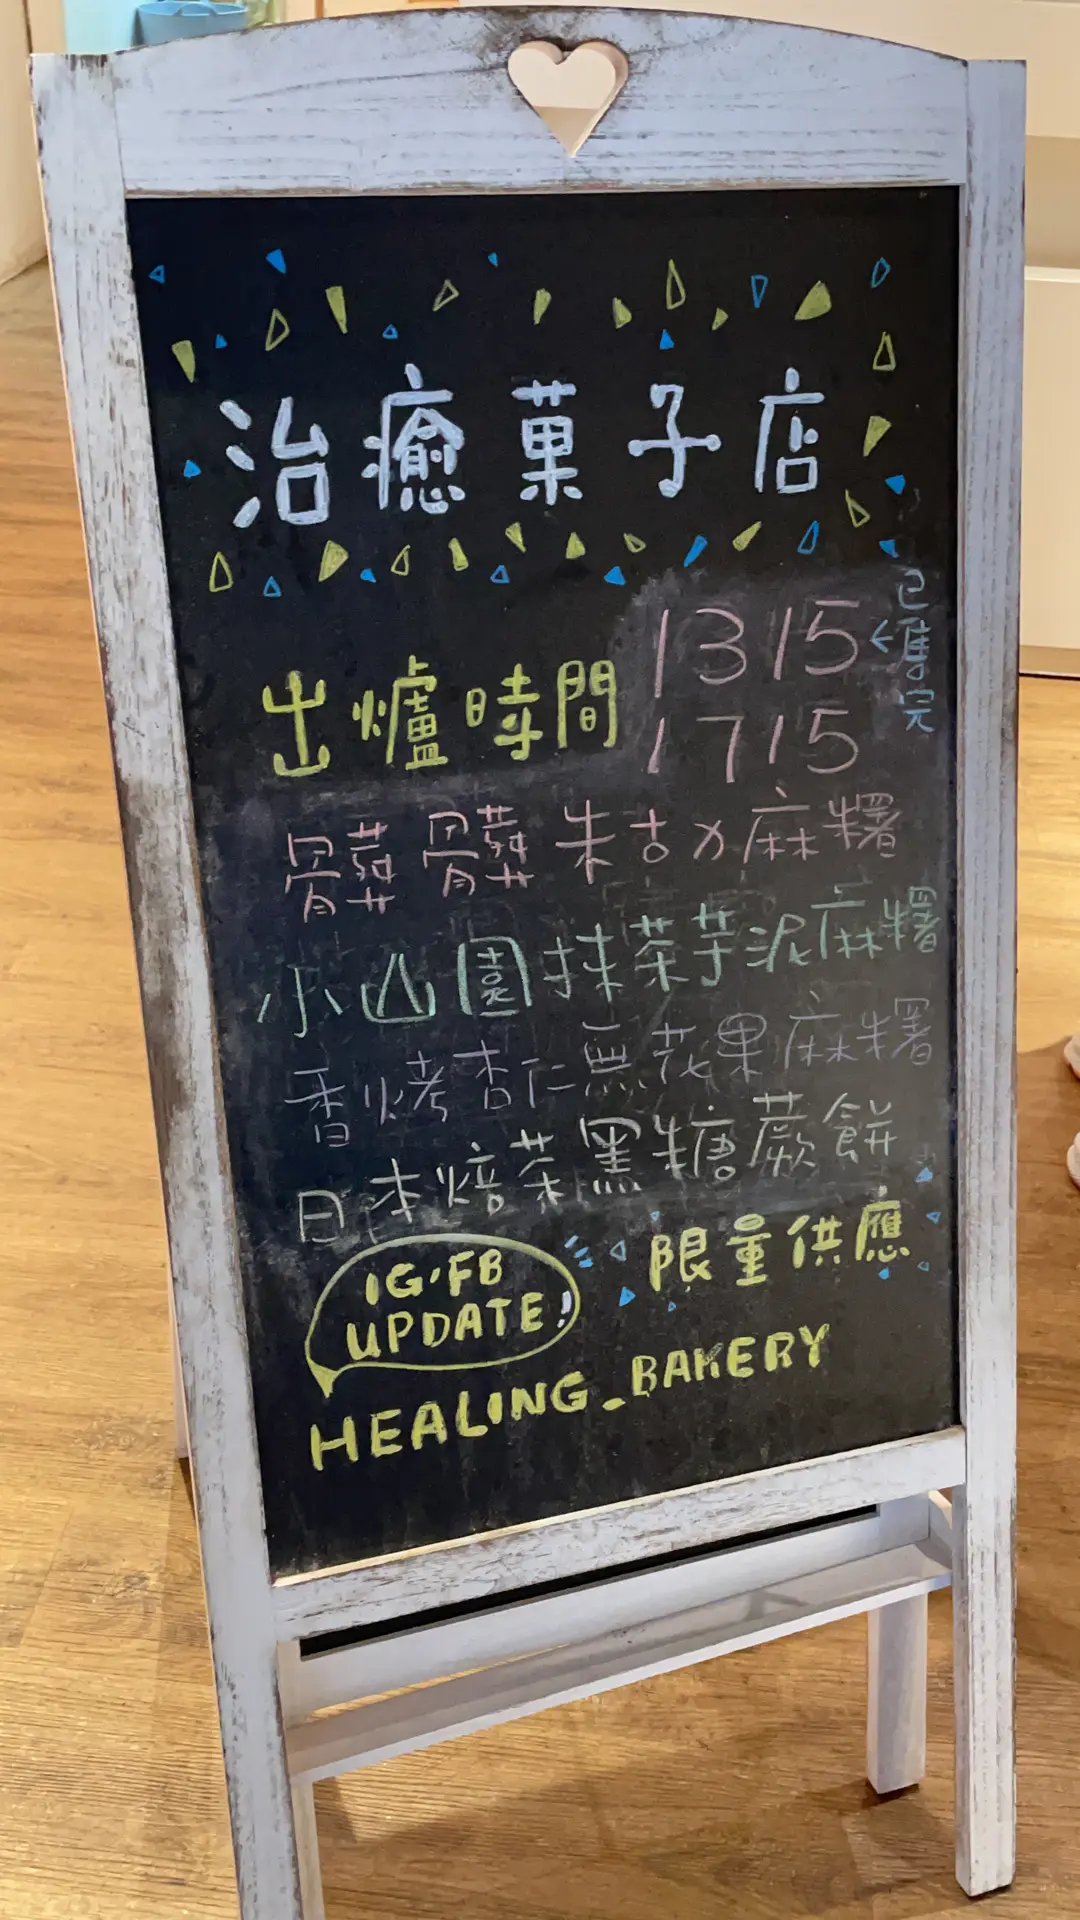 治癒菓子店
出爐時間
1315 ←已售完
1715
髒髒朱古力麻糬
小山園抹茶芋泥麻糬
香烤杏仁無花果麻糬
日本焙茶黑糖蕨餅
限量供應
IG・FB
UPDATE!
HEALING_BAKERY